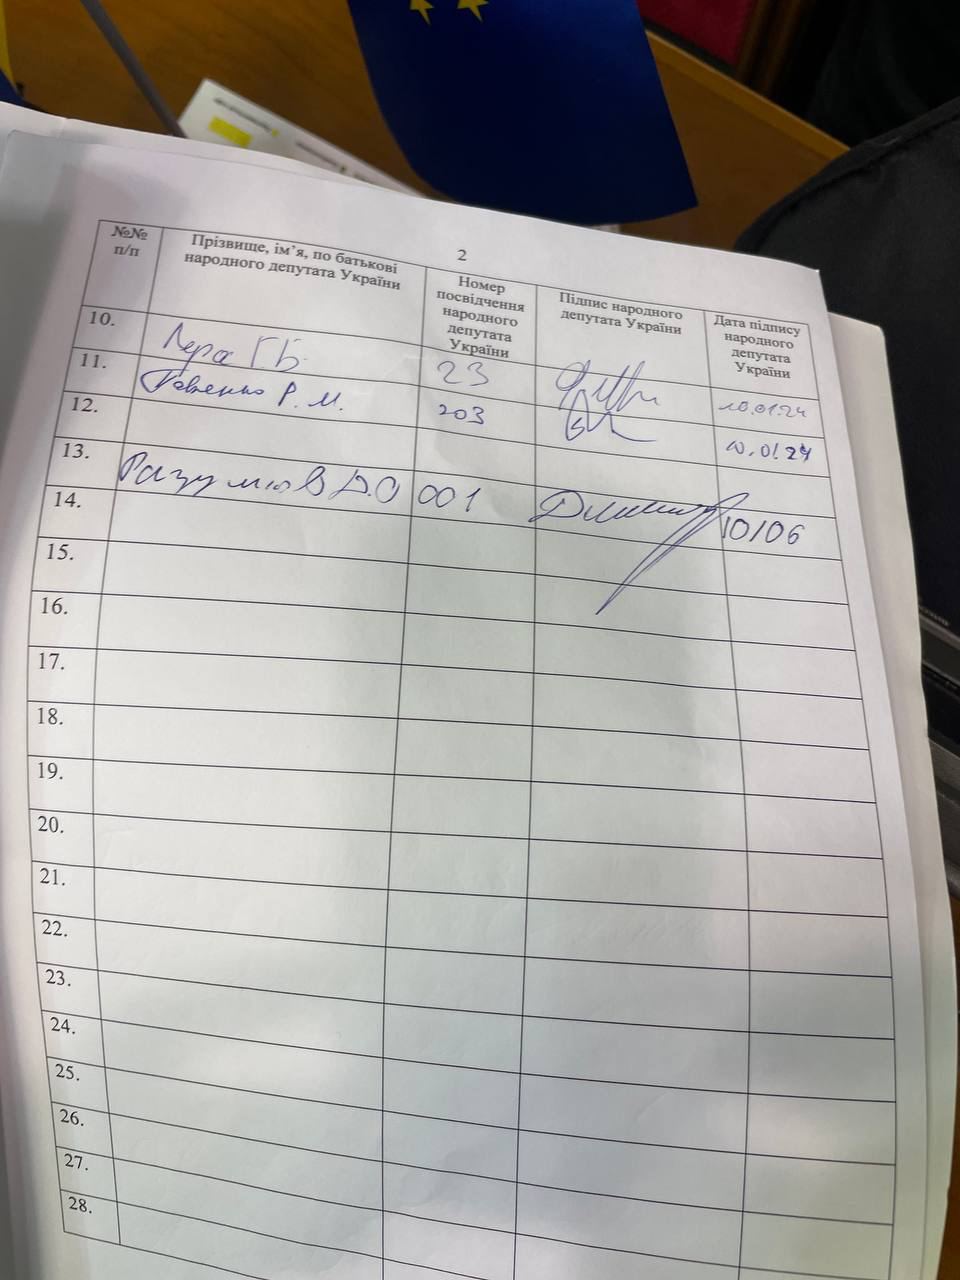 2
№№ п/п
Прізвище, ім’я, по батькові народного депутата України
Номер посвідчення народного депутата України
Підпис народного депутата України
Дата підпису народного депутата України
10. Лера Г.Б. 23 10.01.24
11. Р. М. 203 10.01.24
12.
13. Разумков Д.О 001 10/06
14.
15.
16.
17.
18.
19.
20.
21.
22.
23.
24.
25.
26.
27.
28.